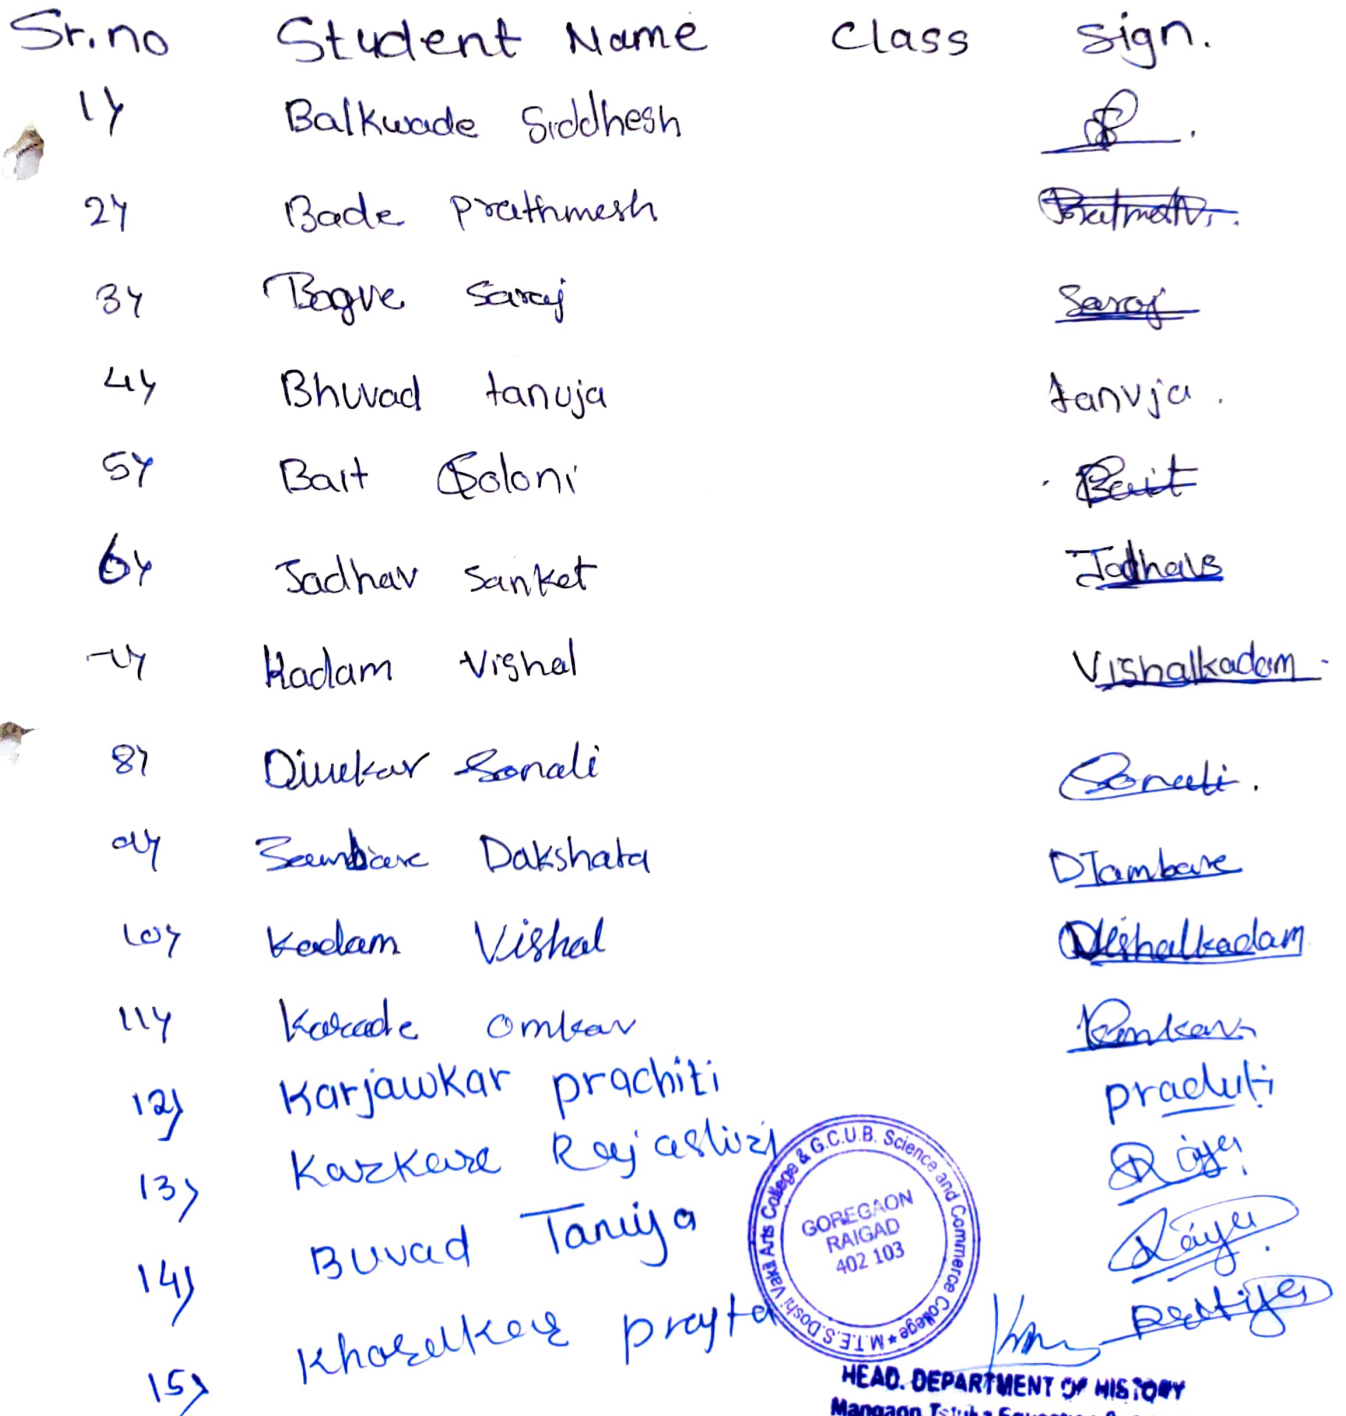 Sr.no Student Name Class Sign.
1) Balkwade Siddhesh
2) Bade Prathmesh
3) Bogve Saraj Saraj
4) Bhuvad tanuja tanuja.
5) Bait Soloni Bait
6) Jadhav Sanket Jadhavs
7) Kadam Vishal Vishalkadam
8) Divekar Sonali Sonali.
9) Dakshata DTambare
10) Kadam Vishal Vishalkadam
11) Karade Omkar Omkar
12) Karjawkar prachiti prachiti
13) Karkare Rajashri
14) Buvad Tanuja
15)
M.T.E.S. Doshi Vakil Arts College & G.C.U.B. Science and Commerce College ★
GOREGAON
RAIGAD
402 103
HEAD. DEPARTMENT OF HISTORY
Mangaon Taluka